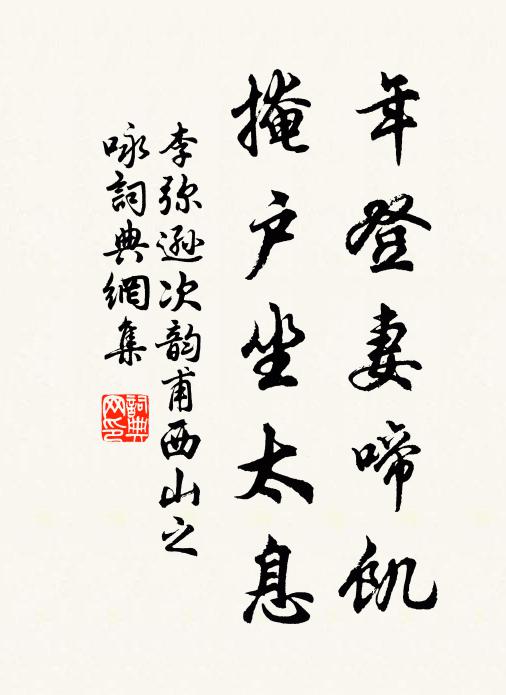 年登妻啼飢
掩户坐太息
李弥遜次韵甫西山之
咏詞典網集
詞典
网印